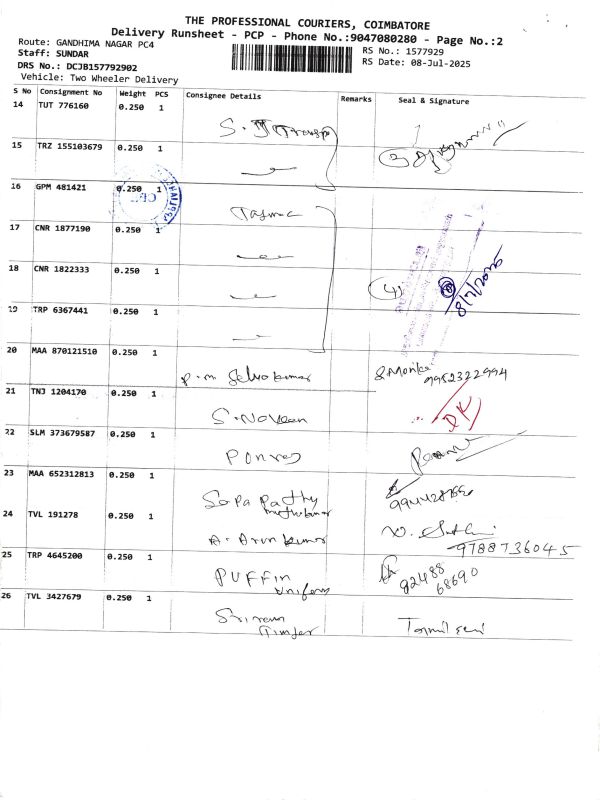 THE PROFESSIONAL COURIERS, COIMBATORE
Delivery Runsheet - PCP - Phone No.:9047080280 - Page No.:2
Route: GANDHIMA NAGAR PC4
RS No.: 1577929
Staff: SUNDAR
RS Date: 08-Jul-2025
DRS No.: DCJB157792902
Vehicle: Two Wheeler Delivery
S No Consignment No Weight PCS Consignee Details Remarks Seal & Signature
14 TUT 776160 0.250 1
15 TRZ 155103679 0.250 1
16 GPM 481421 0.250 1 Tasmac
17 CNR 1877190 0.250 1
18 CNR 1822333 0.250 1 4
8/7/2025
19 TRP 6367441 0.250 1
20 MAA 870121510 0.250 1 P.M Selvakumar S.Monika
9952322994
21 TNJ 1204170 0.250 1 S.Naveen
22 SLM 373679587 0.250 1
23 MAA 652312813 0.250 1 Sapapathy
muthukumar
24 TVL 191278 0.250 1 A. Arun kumar
9788736045
25 TRP 4645200 0.250 1 PUFFin
Uniform
82488
68690
26 TVL 3427679 0.250 1 Sriram
Timber